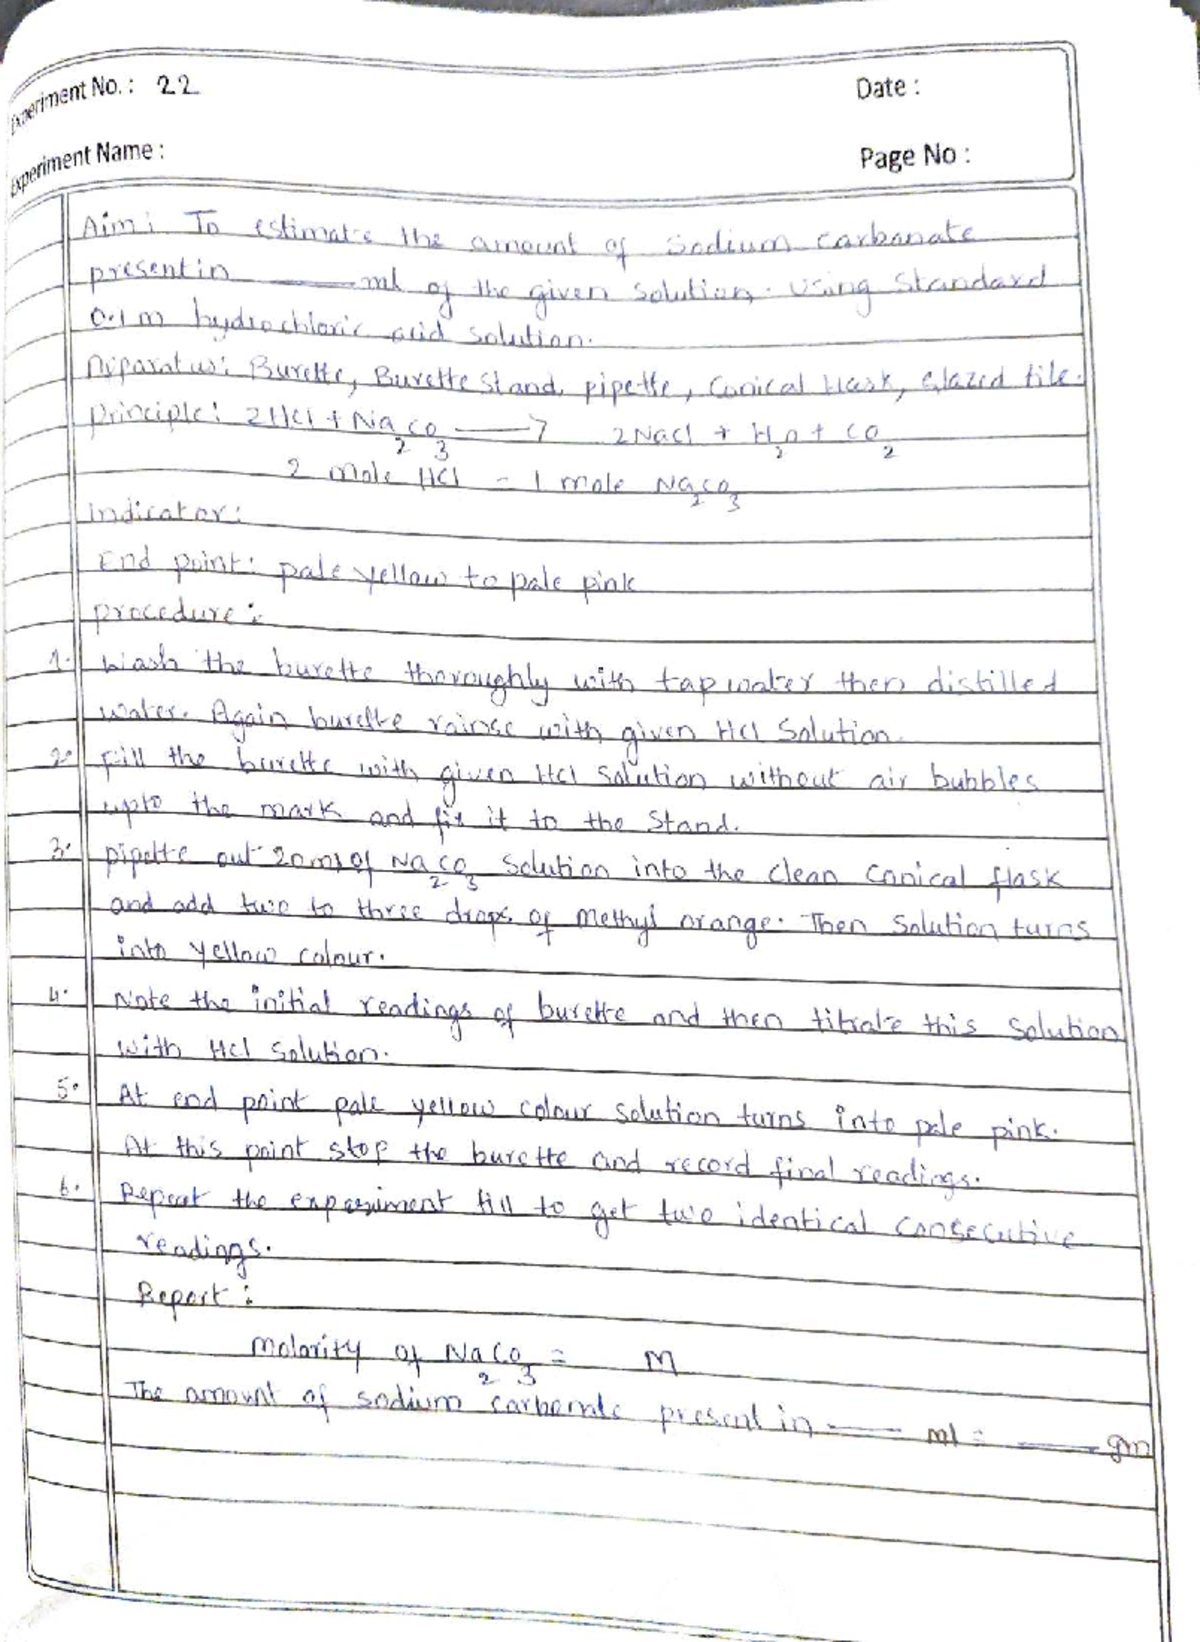 Experiment No. : 22
Date :
Experiment Name :
Page No :
Aim: To estimate the amount of Sodium carbonate
present in ____ ml of the given solution. Using Standard
0.1 m hydrochloric acid solution.
Apparatus: Burette, Burette Stand, pipette, Conical flask, Glazed tile.
Principle: 2HCl + Na2CO3 → 2NaCl + H2O + CO2
2 mole HCl - 1 mole Na2CO3
indicator:
End point: pale yellow to pale pink
procedure:
1. Wash the burette thoroughly with tap water then distilled
water. Again burette rainse with given HCl Solution.
2. Fill the burette with given HCl Solution without air bubbles
upto the mark and fix it to the Stand.
3. pipette out 20ml of Na2CO3 Solution into the clean Conical flask
and add two to three drops of methyl orange. Then Solution turns
into yellow colour.
4. Note the initial readings of burette and then titrate this Solution
with HCl Solution.
5. At end point pale yellow colour solution turns into pale pink.
At this point stop the burette and record final readings.
6. Repeat the experiment till to get two identical Consecutive
readings.
Report:
Molarity of Na2CO3 = M
The amount of sodium carbonate present in ____ ml = ____ gm